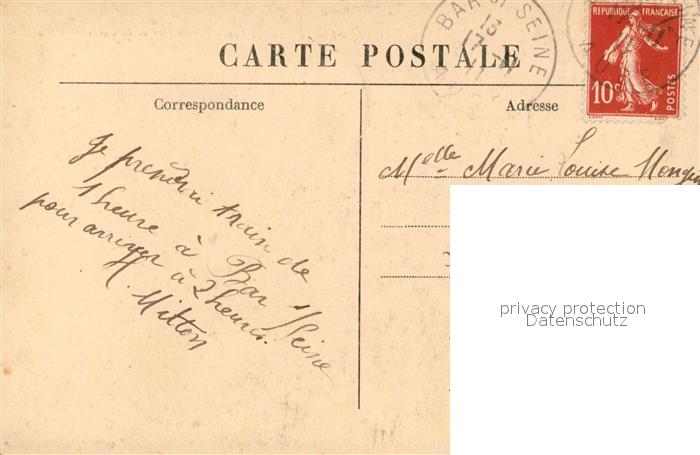 BAR S/ SEINE
RÉPUBLIQUE FRANÇAISE
10c
POSTES
CARTE POSTALE
Correspondance
Adresse
Je prendrai train de
1 heure à Bar s/ Seine
pour arriver à 2 heures.
Mitton
Melle Marie Louise
privacy protection
Datenschutz